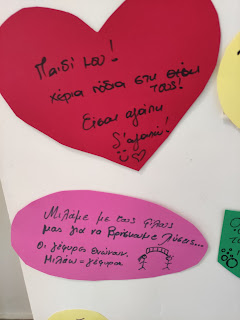 Παιδί μου!
χέρια πόδια στη θέση
τους!
Είσαι αγάπη
Σ'αγαπώ!
Μιλάμε με τους φίλους
μας για να βρίσκουμε λύσεις...
Οι γέφυρες ενώνουν.
Μιλάω = γέφυρα